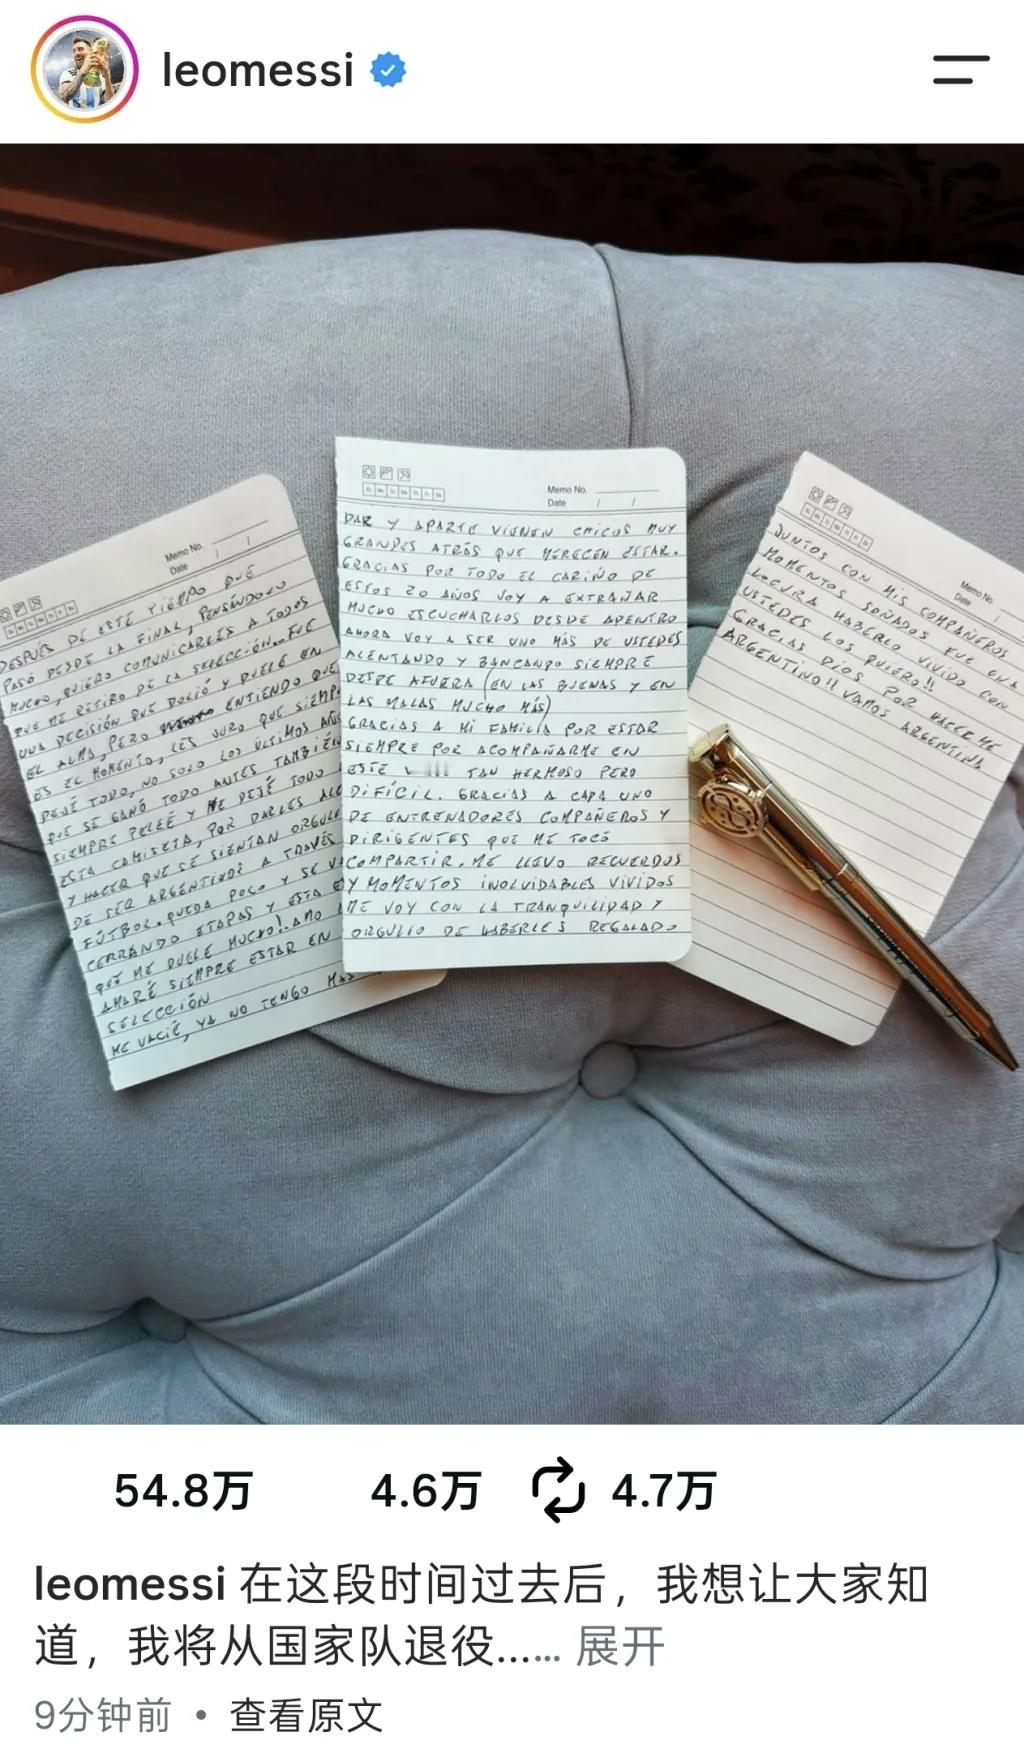 leomessi
Memo No.
Date / /
DESPUÉS DE ESTE TIEMPO QUE
PASÓ DESDE LA FINAL, PENSÁNDOLO
MUCHO, QUIERO COMUNICARLES A TODOS
QUE ME RETIRO DE LA SELECCIÓN.. FUE
UNA DECISIÓN QUE DOLIÓ Y DUELE EN
EL ALMA, PERO ENTIENDO QUE
ES EL MOMENTO, LES JURO QUE SIEMP
DEJÉ TODO, NO SOLO LOS ÚLTIMOS AÑ
QUE SE GANÓ TODO ANTES TAMBIÉN
SIEMPRE PELEÉ Y ME DEJÉ TODO
ESTA CAMISETA, POR DARLES ALE
Y HACER QUE SE SIENTAN ORGULL
DE SER ARGENTINOS A TRAVÉS
FÚTBOL. QUEDA POCO Y SE V
CERRANDO ETAPAS Y ESTA E
QUE ME DUELE MUCHO!. AMO
AMARÉ SIEMPRE ESTAR EN
SELECCIÓN
ME VACIÉ, YA NO TENGO MAS
Memo No.
Date / /
DAR Y APARTE VIENEN CHICOS MUY
GRANDES ATRÁS QUE MERECEN ESTAR.
GRACIAS POR TODO EL CARIÑO DE
ESTOS 20 AÑOS VOY A EXTRAÑAR
MUCHO ESCUCHARLOS DESDE ADENTRO
AHORA VOY A SER UNO MÁS DE USTEDES
ALENTANDO Y BANCANDO SIEMPRE
DESDE AFUERA (EN LAS BUENAS Y EN
LAS MALAS MUCHO MÁS)
GRACIAS A MI FAMILIA POR ESTAR
SIEMPRE POR ACOMPAÑARME EN
ESTE TAN HERMOSO PERO
DIFÍCIL. GRACIAS A CADA UNO
DE ENTRENADORES COMPAÑEROS Y
DIRIGENTES QUE ME TOCÓ
COMPARTIR. ME LLEVO RECUERDOS
Y MOMENTOS INOLVIDABLES VIVIDOS
ME VOY CON LA TRANQUILIDAD Y
ORGULLO DE HABERLES REGALADO
Memo No.
Date /
JUNTOS CON MIS COMPAÑEROS
MOMENTOS SOÑADOS FUE UNA
LOCURA HABERLO VIVIDO CON
USTEDES LOS QUIERO!!
GRACIAS DIOS POR HACERME
ARGENTINO!! VAMOS ARGENTINA
54.8万 4.6万 4.7万
leomessi 在这段时间过去后，我想让大家知
道，我将从国家队退役...... 展开
9分钟前 • 查看原文